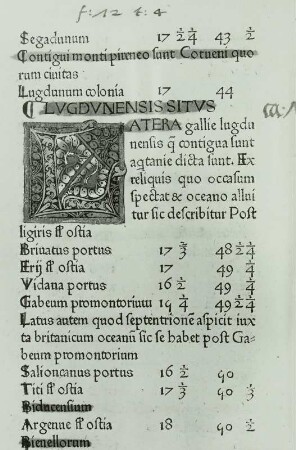 f: 12 t: 4
Segadunum 17 2/4 43 2
Contigui monti pirneo sunt Cotueni quo
rum ciuitas
Lugdunum colonia 17 44
LVGDVNENSIS SITVS
LATERA gallie lugdu
nensis q̃ contigua sunt
aq̃tanie dicta sunt. Ex
reliquis quo occasum
spectat & oceano allui
tur sic describitur Post
ligiris fl̃ ostia
Briuatus portus 17 3/4 48 2/4
Erij fl̃ ostia 17 49 1/4
Vidana portus 16 2 49 3/4
Gabeum promontoriuu 15 1/4 49 2/4
Latus autem quod septentrionẽ aspicit iux
ta britanicum oceanũ sic se habet post Ga-
beum promontorium
Salioncanus portus 16 2 50 1/4
Titi fl̃ ostia 17 3 50 3
Biducensium
Argenue fl̃ ostia 18 50 2
Bienellorum